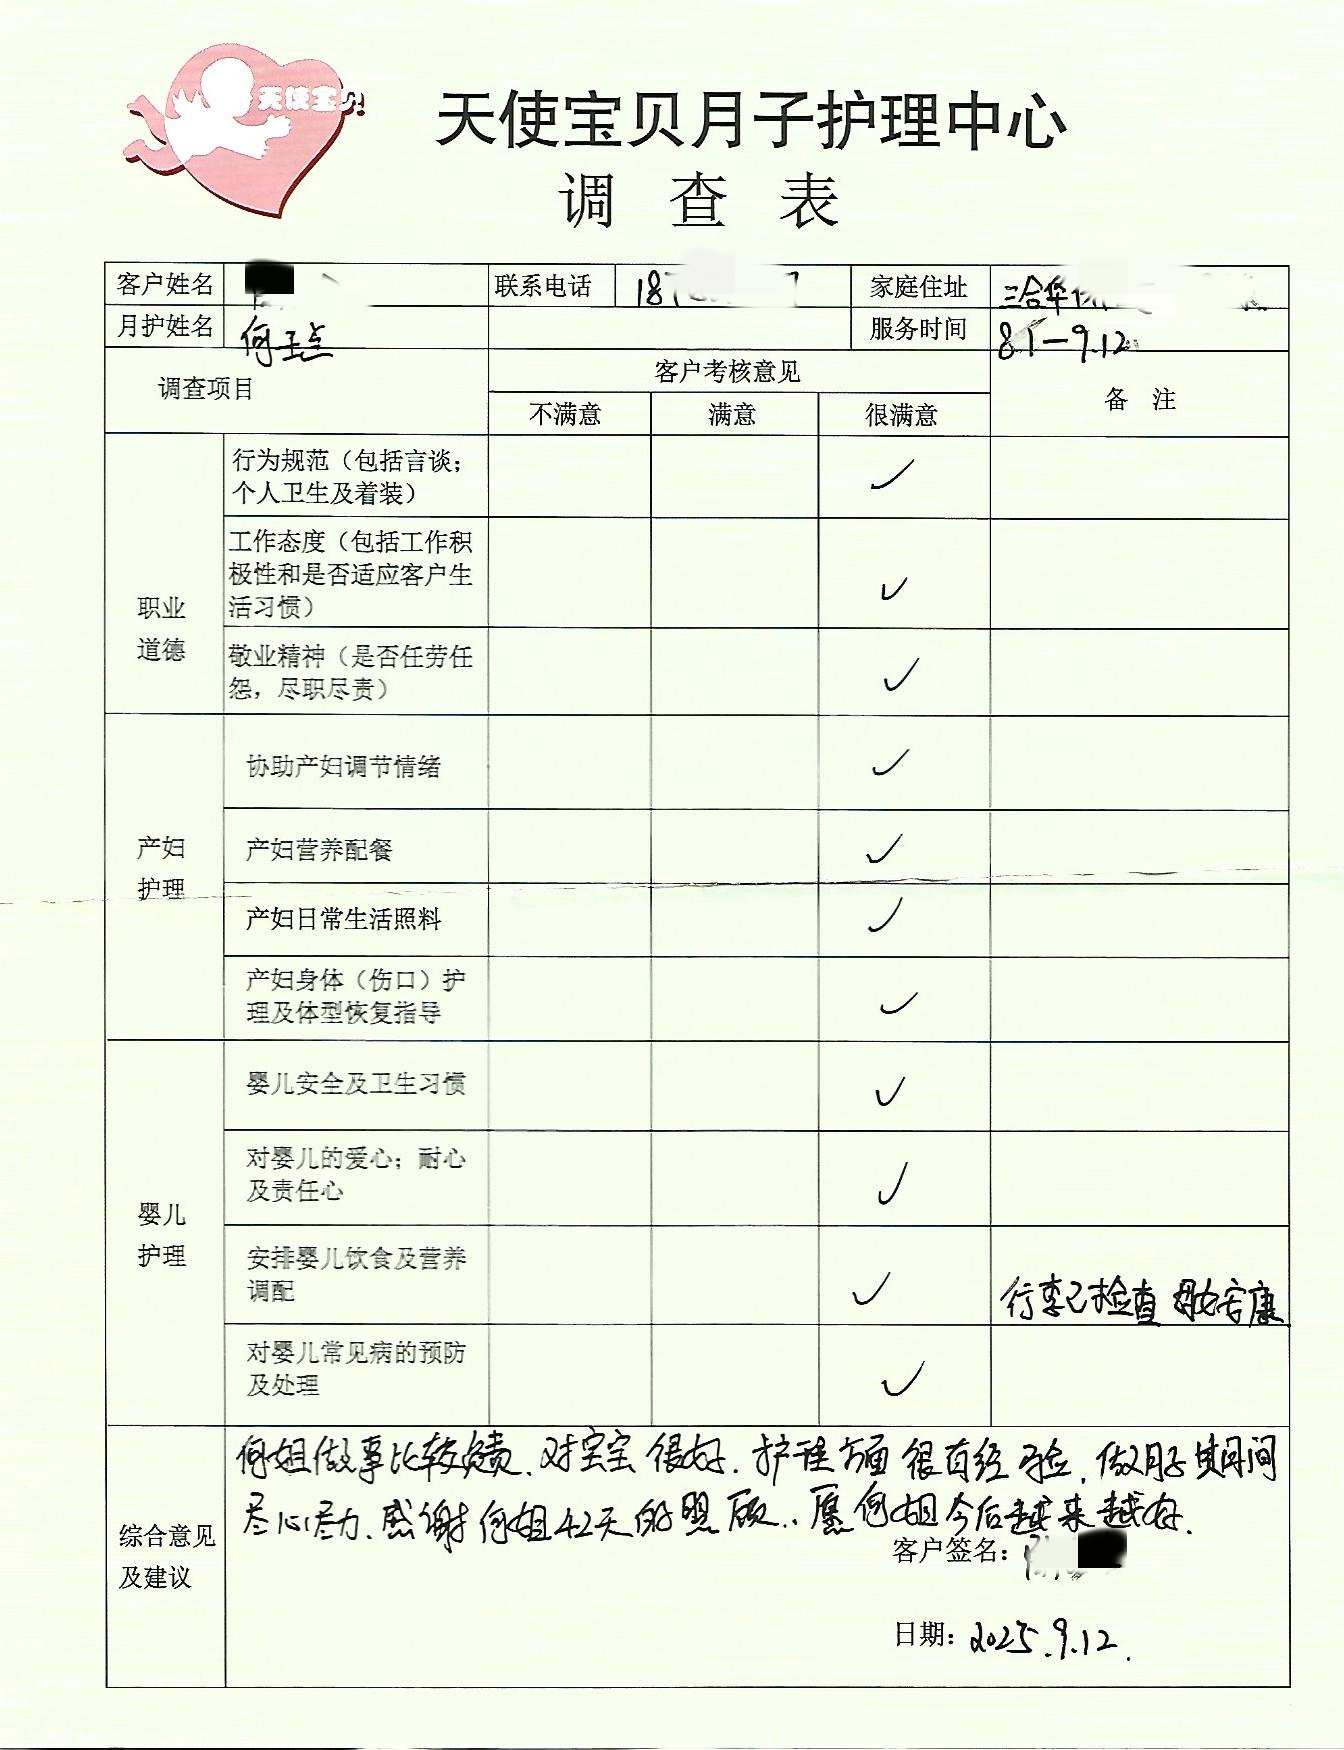 天使宝贝
天使宝贝月子护理中心
调 查 表
客户姓名 联系电话 18 家庭住址 三合华
月护姓名 何玉点 服务时间 8.1-9.12
调查项目 客户考核意见 备 注
不满意 满意 很满意
职业
道德
行为规范（包括言谈；
个人卫生及着装） ✓
工作态度（包括工作积
极性和是否适应客户生
活习惯） ✓
敬业精神（是否任劳任
怨，尽职尽责） ✓
产妇
护理
协助产妇调节情绪 ✓
产妇营养配餐 ✓
产妇日常生活照料 ✓
产妇身体（伤口）护
理及体型恢复指导 ✓
婴儿
护理
婴儿安全及卫生习惯 ✓
对婴儿的爱心；耐心
及责任心 ✓
安排婴儿饮食及营养
调配 ✓ 行李已检查 安康
对婴儿常见病的预防
及处理 ✓
综合意见
及建议
何姐做事比较负责、对宝宝很好、护理方面很有经验、做月子期间
尽心尽力、感谢何姐42天的照顾、愿何姐今后越来越好、
客户签名：
日期：2025.9.12.